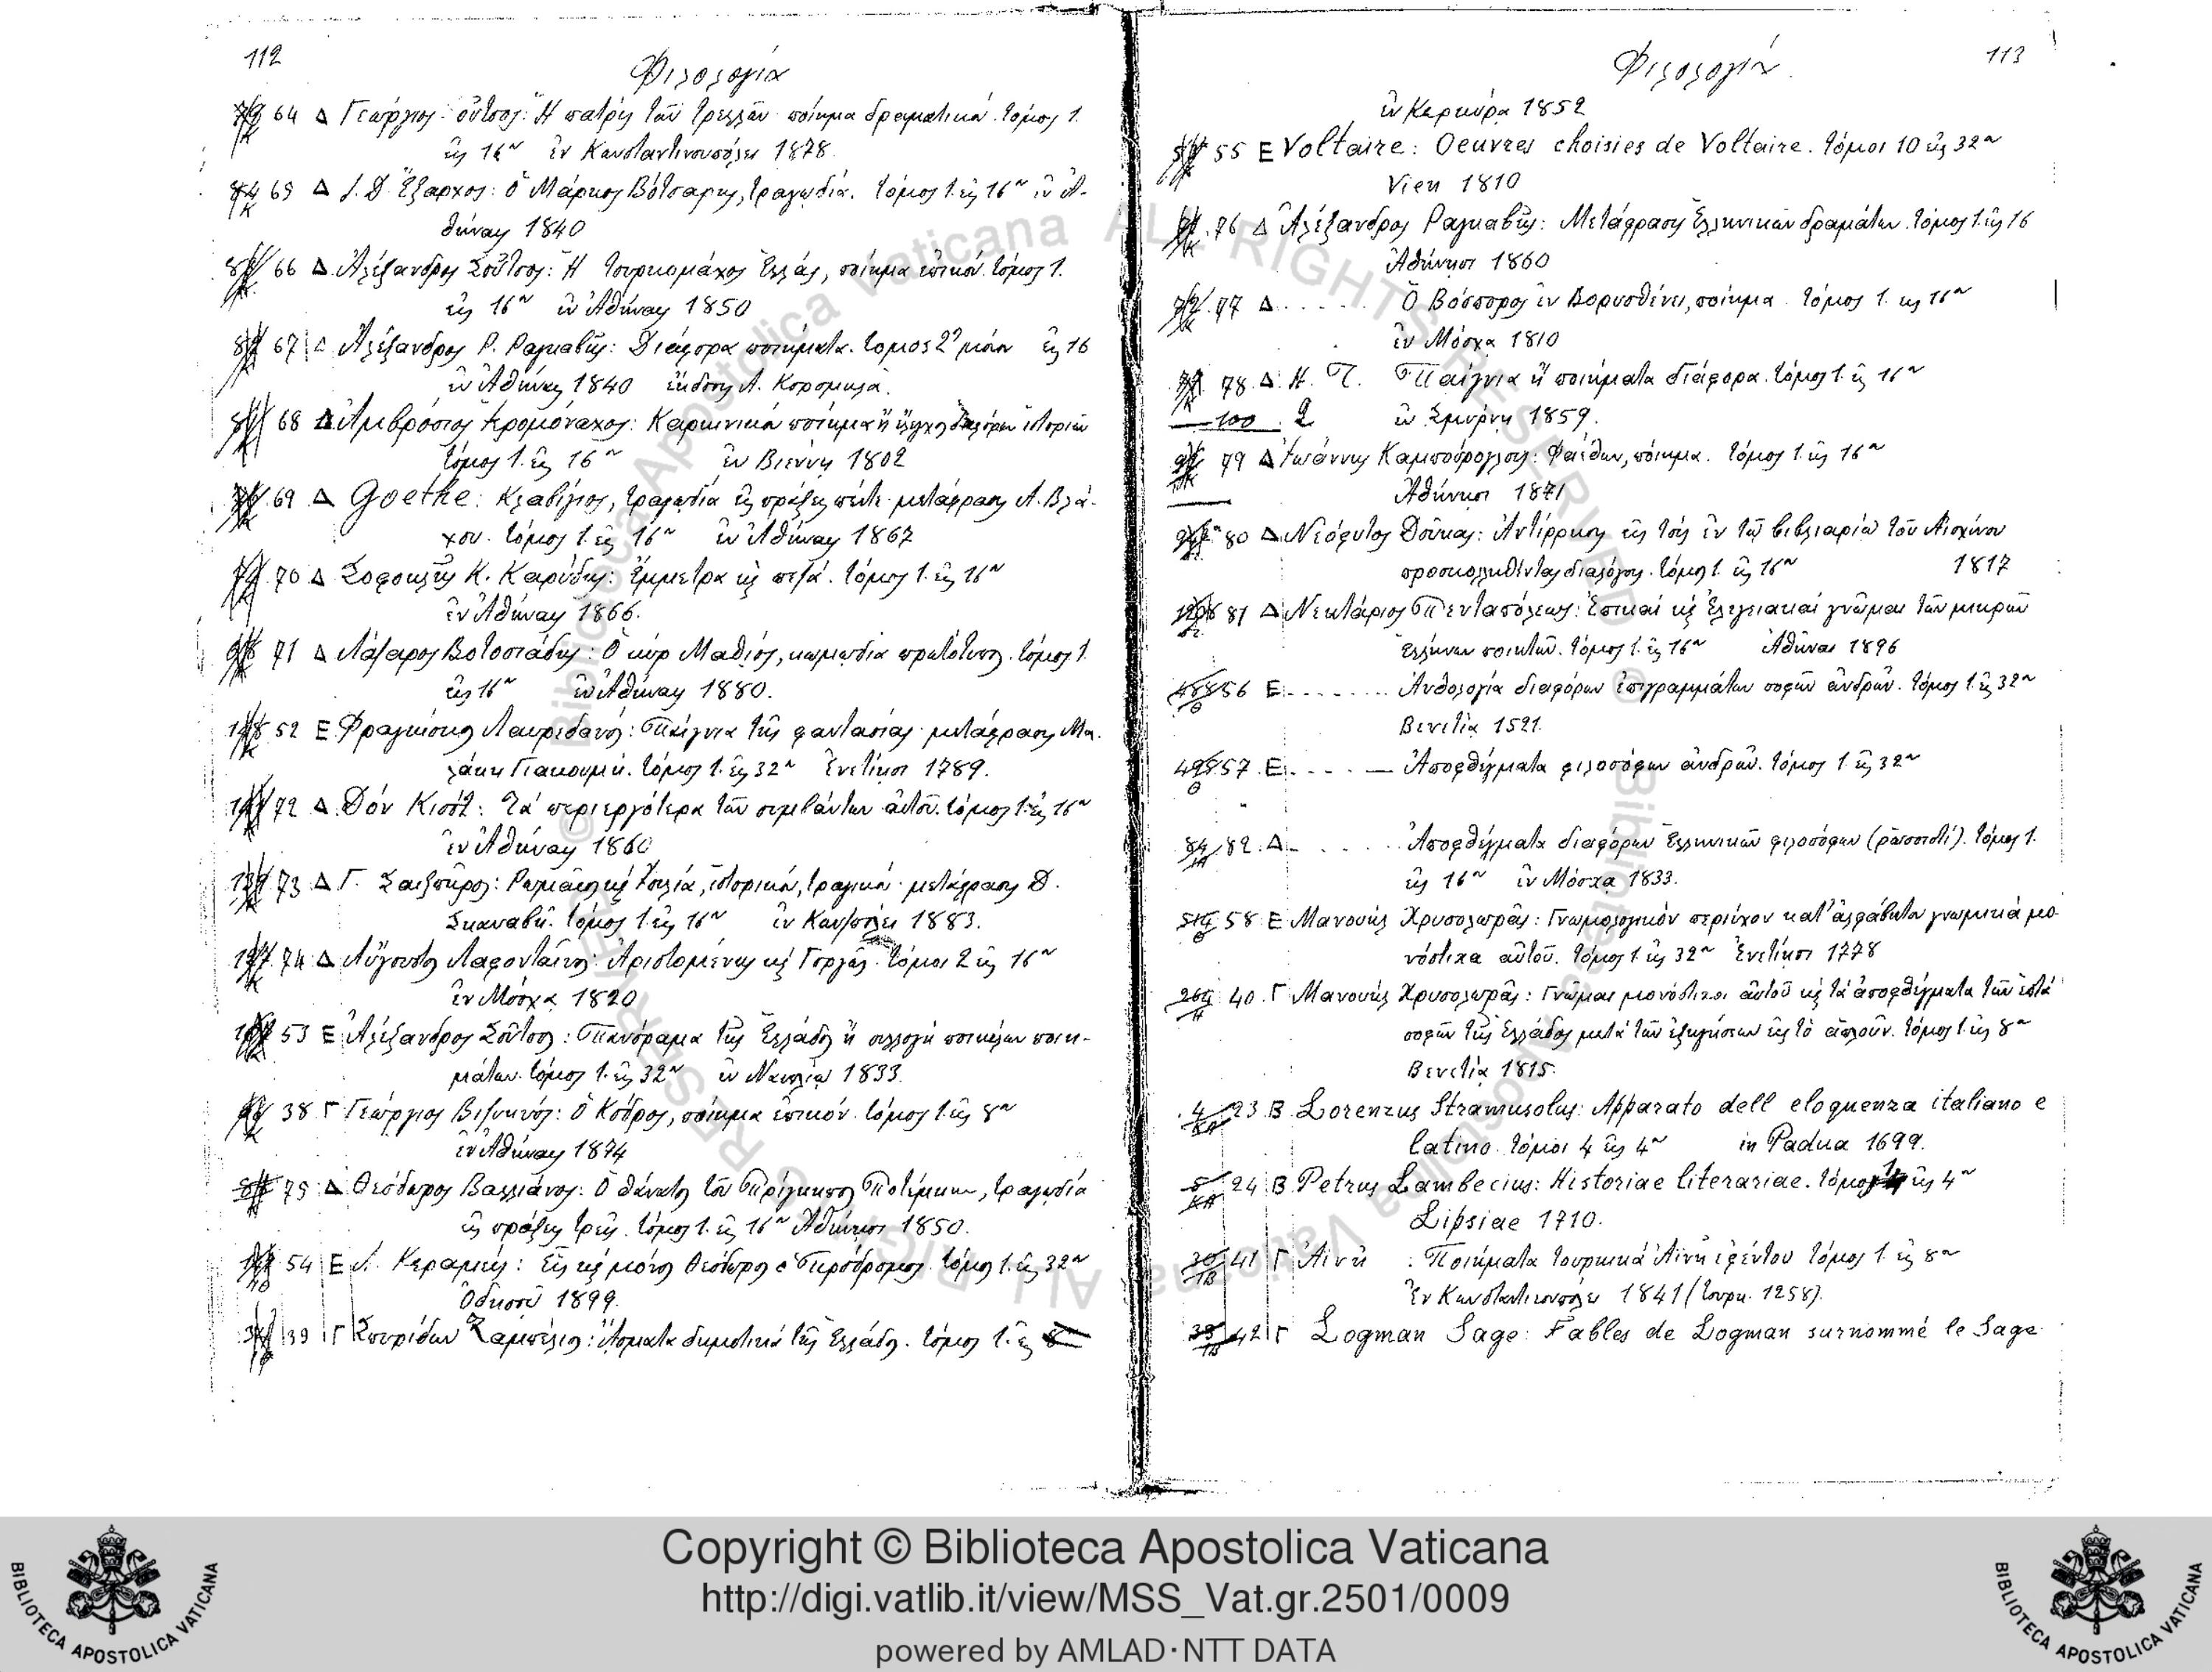 112
Φιλολογία
64 Δ Γεώργιος Σοῦτσος: Ἡ πατρὶς τῶν τρελλῶν ποίημα δραματικόν. τόμος 1.
εἰς 16ον ἐν Κωνσταντινουπόλει 1878.
65 Δ Ι. Δ. Ἔξαρχος: ὁ Μάρκος Βότσαρης, τραγῳδία. τόμος 1. εἰς 16ον ἐν Ἀ-
θήναις 1840
66 Δ Ἀλέξανδρος Σοῦτσος: Ἡ τουρκομάχος Ἑλλάς, ποίημα ἐπικόν. τόμος 1.
εἰς 16ον ἐν Ἀθήναις 1850
67 Δ Ἀλέξανδρος Ρ. Ραγκαβῆς: Διάφορα ποιήματα. τόμος 2ος μόνον εἰς 16
ἐν Ἀθήναις 1840 ἔκδοσις Α. Κορομηλᾶ.
68 Δ Ἀμβρόσιος Ἱερομόναχος: ποίημα ἢ ἔλεγχος ἱστοριῶν
τόμος 1. εἰς 16ον ἐν Βιέννῃ 1802
69 Δ Goethe: Κλαβίγιος, τραγῳδία εἰς πράξεις πέντε μετάφρασις Α. Βλά-
χου. τόμος 1. εἰς 16ον ἐν Ἀθήναις 1867
70 Δ Σοφοκλῆς Κ. Καρύδης: Ἔμμετρα κὶ πεζά. τόμος 1. εἰς 16ον
ἐν Ἀθήναις 1866.
71 Δ Λάζαρος Βοτοσιάδης: Ὁ κύρ Μαθιός, κωμῳδία πρωτότυπος. τόμος 1.
εἰς 16ον ἐν Ἀθήναις 1880.
52 Ε Φραγκίσκος Λαυρεδανός: Παίγνια τῆς φαντασίας μετάφρασις Μα-
λάκη Γιακουμῆ. τόμος 1. εἰς 32ον Ἐνετίῃσι 1789.
72 Δ Δόν Κισότ: Τὰ περιεργότερα τῶν συμβάντων αὐτοῦ. τόμος 1. εἰς 16ον
ἐν Ἀθήναις 1860
73 Δ Γ. Σαιξπῆρος: Ρωμαῖος κὶ Ἰουλία, ἱστορικόν, τραγικόν μετάφρασις Δ.
Σκαναβῆ. τόμος 1. εἰς 16ον ἐν Κων/πόλει 1883.
74 Δ Αὔγουστος Λαφονταῖνος: Ἀριστομένης κὶ Γοργώ. τόμοι 2 εἰς 16ον
ἐν Μόσχᾳ 1820
53 Ε Ἀλέξανδρος Σοῦτσος: Πανόραμα τῆς Ἑλλάδος ἢ συλλογὴ ποικίλων ποιη-
μάτων. τόμος 1. εἰς 32ον ἐν Ναυπλίῳ 1833.
38 Γ Γεώργιος Βιζυηνός: ὁ Κόδρος, ποίημα ἐπικόν. τόμος 1. εἰς 8ον
ἐν Ἀθήναις 1874
75 Δ Θεόδωρος Βαλλιάνος: Ὁ θάνατος τοῦ Πρίγκηπος Ποτέμκιν, τραγῳδία
εἰς πράξεις τρεῖς. τόμος 1. εἰς 16ον Ἀθήνησι 1850.
54 Ε Ι. Κεραμεύς: Εἷς κὶ μόνος Θεόδωρος ὁ Πρόδρομος. τόμος 1. εἰς 32ον
Ὀδησσῷ 1899.
39 Γ Σπυρίδων Ζαμπέλιος: Ἄσματα δημοτικά τῆς Ἑλλάδος. τόμος 1. εἰς 8
113
Φιλολογία.
ἐν Κερκύρᾳ 1852
55 Ε Voltaire: Oeuvres choisies de Voltaire. τόμοι 10 εἰς 32ον
Vien 1810
76 Δ Ἀλέξανδρος Ραγκαβῆς: Μετάφρασις Ἑλληνικῶν δραμάτων. τόμος 1. εἰς 16
Ἀθήνησι 1860
77 Δ ..... Ὁ Βόσπορος ἐν Βορυσθένει, ποίημα. τόμος 1. εἰς 16ον
ἐν Μόσχᾳ 1810
78 Δ Η. Τ. Παίγνια ἢ ποιήματα διάφορα. τόμος 1. εἰς 16ον
100 2 ἐν Σμύρνῃ 1859.
79 Δ Ἰωάννης Καμπούρογλους: Φαέθων, ποίημα. τόμος 1. εἰς 16ον
Ἀθήνησι 1871
80 Δ Νεόφυτος Δούκας: Ἀντίρρησις εἰς τοὺς ἐν τῷ βιβλιαρίῳ τοῦ Αἰσχίνου
προσκολληθέντας διαλόγους. τόμος 1. εἰς 16ον 1817
81 Δ Νεκτάριος Πενταπόλεως: Ἐπικαί κὶ ἐλεγειακαί γνῶμαι τῶν μικρῶν
Ἑλλήνων ποιητῶν. τόμος 1. εἰς 16ον Ἀθῆναι 1896
56 Ε ....... Ἀνθολογία διαφόρων ἐπιγραμμάτων σοφῶν ἀνδρῶν. τόμος 1. εἰς 32ον
Βενετίᾳ 1521.
57 Ε ..... Ἀποφθέγματα φιλοσόφων ἀνδρῶν. τόμος 1. εἰς 32ον
82 Δ ..... Ἀποφθέγματα διαφόρων Ἑλληνικῶν φιλοσόφων (ρωσσιστί). τόμος 1.
εἰς 16ον ἐν Μόσχᾳ 1833.
58 Ε Μανουήλ Χρυσολωρᾶς: Γνωμολογικόν περιέχον κατ' ἀλφάβητον γνωμικά μο-
νόστιχα αὐτοῦ. τόμος 1. εἰς 32ον Ἐνετίῃσι 1778
40. Γ Μανουήλ Χρυσολωρᾶς: Γνῶμαι μονόστιχοι αὐτοῦ κὶ τὰ ἀποφθέγματα τῶν ἑπτά
σοφῶν τῆς Ἑλλάδος μετά τῶν ἐξηγήσεων εἰς τὸ ἁπλοῦν. τόμος 1. εἰς 8ον
Βενετίᾳ 1815.
23 Β Lorenzus Stramusolus: Apparato dell eloquenza italiano e
latino. τόμοι 4 εἰς 4ον in Padua 1699.
24 Β Petrus Lambecius: Historiae literariae. τόμος 1 εἰς 4ον
Lipsiae 1710.
41 Γ Ἀϊνῆ : Ποιήματα τουρκικά Ἀϊνῆ ἐφέντου τόμος 1. εἰς 8ον
Ἐν Κωνσταντινουπόλει 1841 (τουρκ. 1258).
42 Γ Logman Sage: Fables de Logman surnommé le Sage
© Biblioteca Apostolica Vaticana ALL RIGHTS RESERVED
Copyright © Biblioteca Apostolica Vaticana
http://digi.vatlib.it/view/MSS_Vat.gr.2501/0009
powered by AMLAD·NTT DATA
BIBLIOTECA APOSTOLICA VATICANA
BIBLIOTECA APOSTOLICA VATICANA